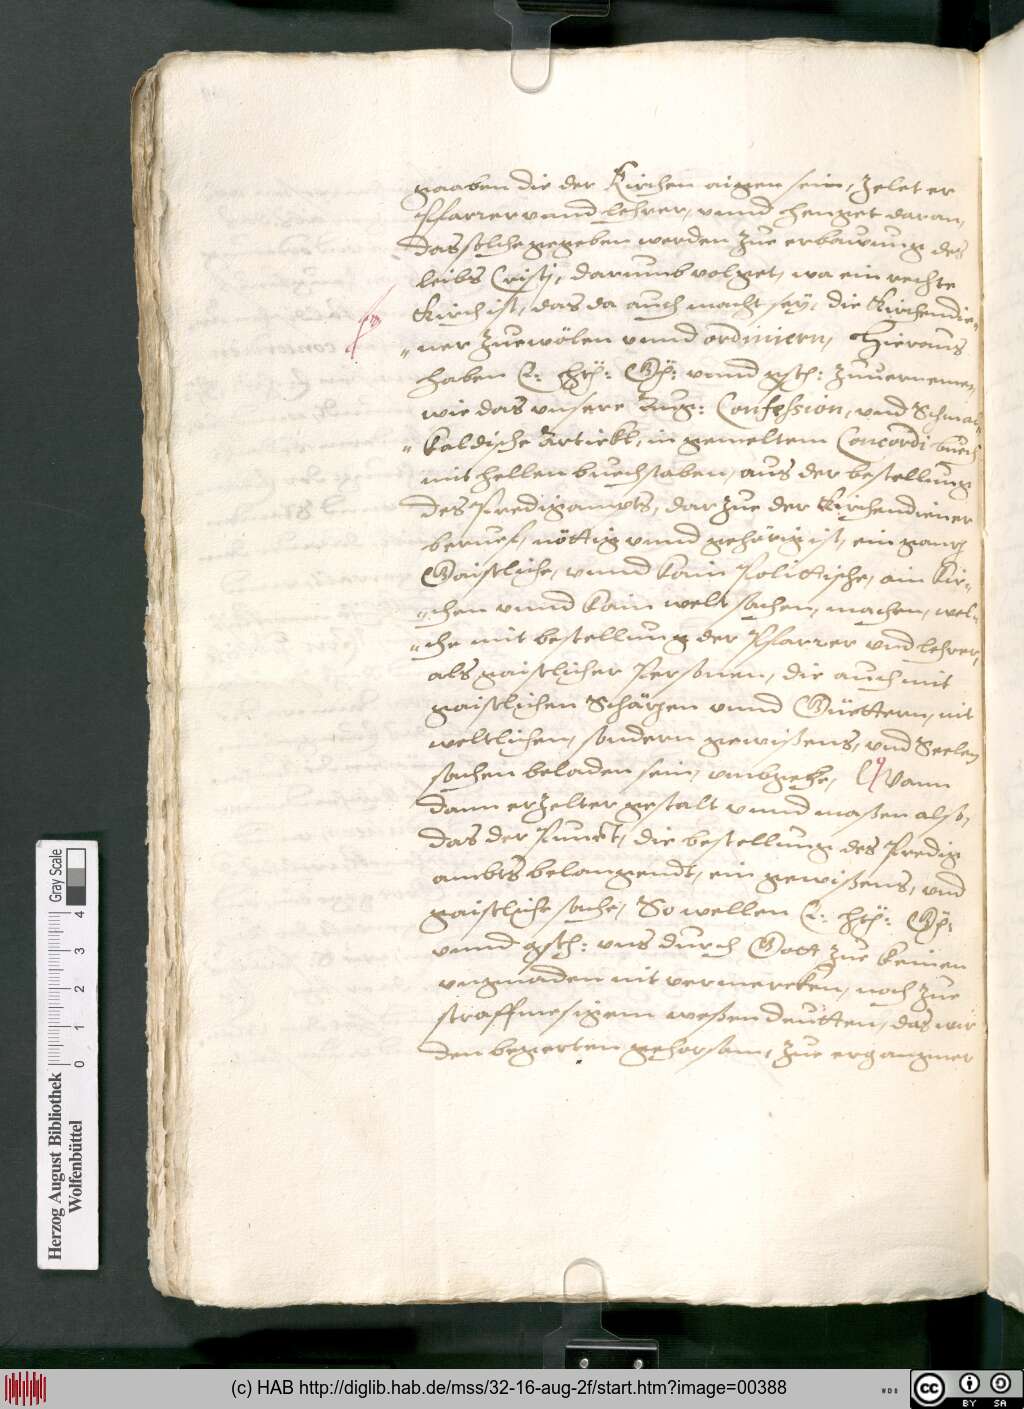 gaaben die der Kirchen aigen sein, zelet er
Pfarrer unnd lehrer, unnd henget daran,
das solche gegeben werden zue erbauung des
leibs Cristj, darumb volget, wa ein rechte
Kirch ist, das da auch macht seÿ, die Kirchendie„
„ner zuewölen unnd ordiniern, Hieraus
haben E: Hrl: Gst: unnd gst: zuvernemen,
wie das unsere Aug: Confession, und Schmal„
„kaldische Artickl, in gemeltem Concordi buech
mit hellen buechstaben, aus der bestellung
des Predigampts, darzue der Kirchendiener
beruef, nöttig unnd gehörig ist, ein ganz
Gaistliche, unnd kain Polittische, ain Kir„
„chen unnd kain welt sachen, machen, wel„
„che mit bestellung der Pfarrer und lehrer,
als gaistlicher Personen, die auch mit
gaistlichen Schäzen unnd Güettern, nit
weltlichen, sondern gewißens, und Seelen
sachen beladen sein, umbgehe, Wann
dann erzelter gestalt unnd maßen also,
das der Punct, die bestellung des Predig
ambts belangendt, ein gewißens, und
gaistliche sache, So wellen E: Hrl: Gst:
unnd gst: uns durch Gott zue keinen
ungnaden nit vermercken, noch zue
straffmesigem weßen deütten, das wir
den begerten gehorsam, zue ergangner
Herzog August Bibliothek
Wolfenbüttel
0 1 2 3 4
Gray Scale
(c) HAB http://diglib.hab.de/mss/32-16-aug-2f/start.htm?image=00388
WDB
cc BY SA